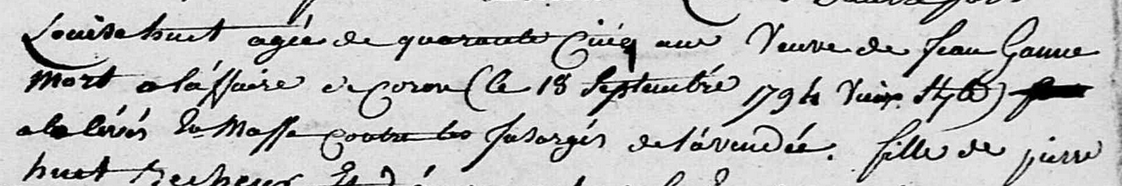 Louise huet agée de quarante Cinq ans Veuve de Jean Ganne
Mort a laffaire de Coron (le 18 Septembre 1794 Vieux Style)
a la levés En Masse contre les Insurgés de lavendée. fille de pierre
huet